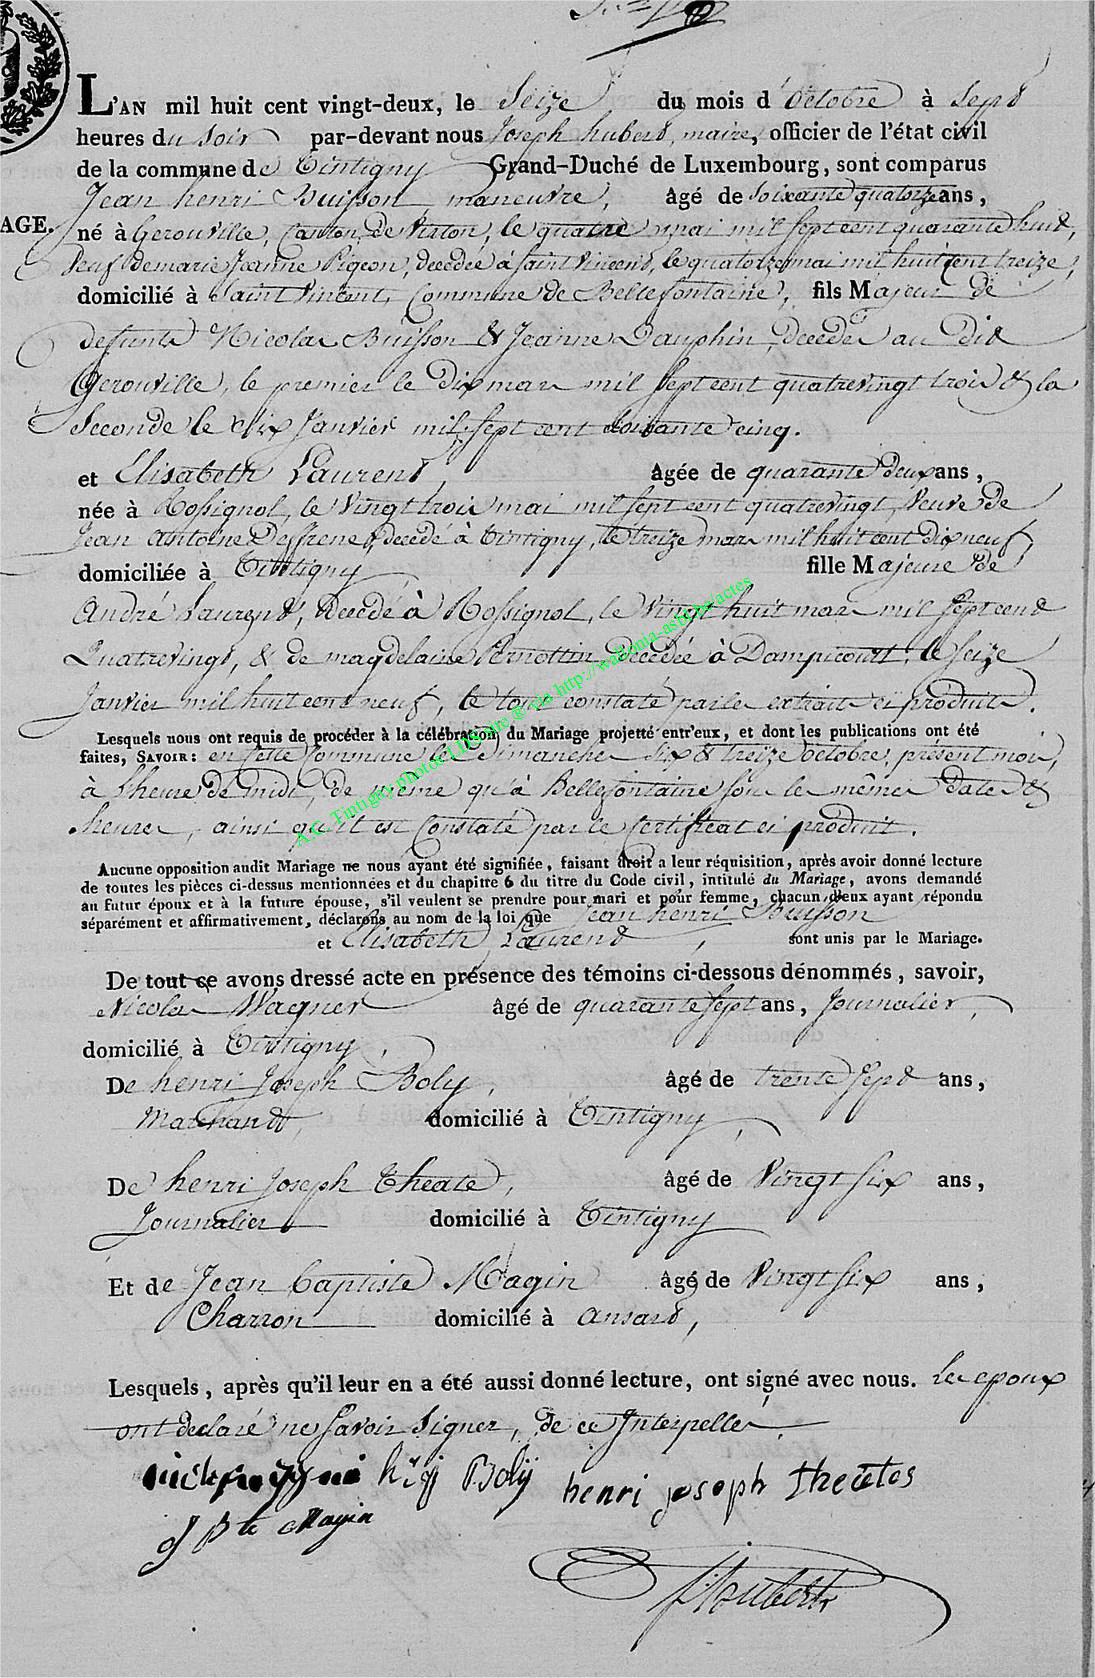 L'AN mil huit cent vingt-deux, le Seize du mois d'Octobre à Sept
heures du soir par-devant nous Joseph hubert, maire, officier de l'état civil
de la commune de Tintigny Grand-Duché de Luxembourg, sont comparus
Jean henri Buisson maneuvre, âgé de soixante quatorze ans,
AGE.
né à Gerouville, Canton de Virton, le quatre mai mil sept cent quarante huit,
veuf de marie Jeanne Pigeon, decedée à Saint Vincent, le quatorze mai mil huit cent treize,
domicilié à Saint Vincent, Commune de Bellefontaine, fils Majeur de
defunts Nicolas Buisson & Jeanne Dauphin, decedés au dit
Gerouville, le premier le dix mars mil sept cent quatrevingt trois & la
Seconde le dix Janvier mil sept cent soixante cinq.
et Elisabeth Laurent, Agée de quarante deux ans,
née à Rossignol, le vingt trois mai mil sept cent quatrevingt, veuve de
Jean Antoine Deffrene, decedé à Tintigny, le treize mars mil huit cent dix neuf,
domiciliée à Tintigny fille Majeure de
André Laurent, decedé à Rossignol, le vingt huit mars mil sept cent
Quatrevingt, & de magdelaine Pernottin decedée à Dampicourt, le seize
Janvier mil huit cent neuf, le tout constaté par les extraits ci produits.
Lesquels nous ont requis de procéder à la célébration du Mariage projetté entr'eux, et dont les publications ont été
faites, SAVOIR: en cette Commune les Dimanches six & treize octobre, présent mois,
à l'heure de midi, de même qu'à Bellefontaine sous les mêmes dates &
heures, ainsi qu'il est Constaté par le Certificat ci produit.
Aucune opposition audit Mariage ne nous ayant été signifiée, faisant droit a leur réquisition, après avoir donné lecture
de toutes les pièces ci-dessus mentionnées et du chapitre 6 du titre du Code civil, intitulé du Mariage, avons demandé
au futur époux et à la future épouse, s'il veulent se prendre pour mari et pour femme, chacun d'eux ayant répondu
séparément et affirmativement, déclarons au nom de la loi que Jean henri Buisson
et Elisabeth Laurent, sont unis par le Mariage.
De tout ce avons dressé acte en présence des témoins ci-dessous dénommés, savoir,
Nicolas Wagner âgé de quarante sept ans, Journalier,
domicilié à Tintigny,
De henri Joseph Boly, âgé de trente sept ans,
Marchand, domicilié à Tintigny,
De henri Joseph Theate, âgé de Vingt six ans,
Journalier domicilié à Tintigny
Et de Jean Baptiste Magin âgé de Vingt six ans,
Charron domicilié à ansart,
Lesquels, après qu'il leur en a été aussi donné lecture, ont signé avec nous. Les epoux
ont declaré ne savoir signer, de ce Interpellés.
Boly henri joseph
J Bte Magin
A.C. Tintigny photos via http://wallonia-asbl.be/actes